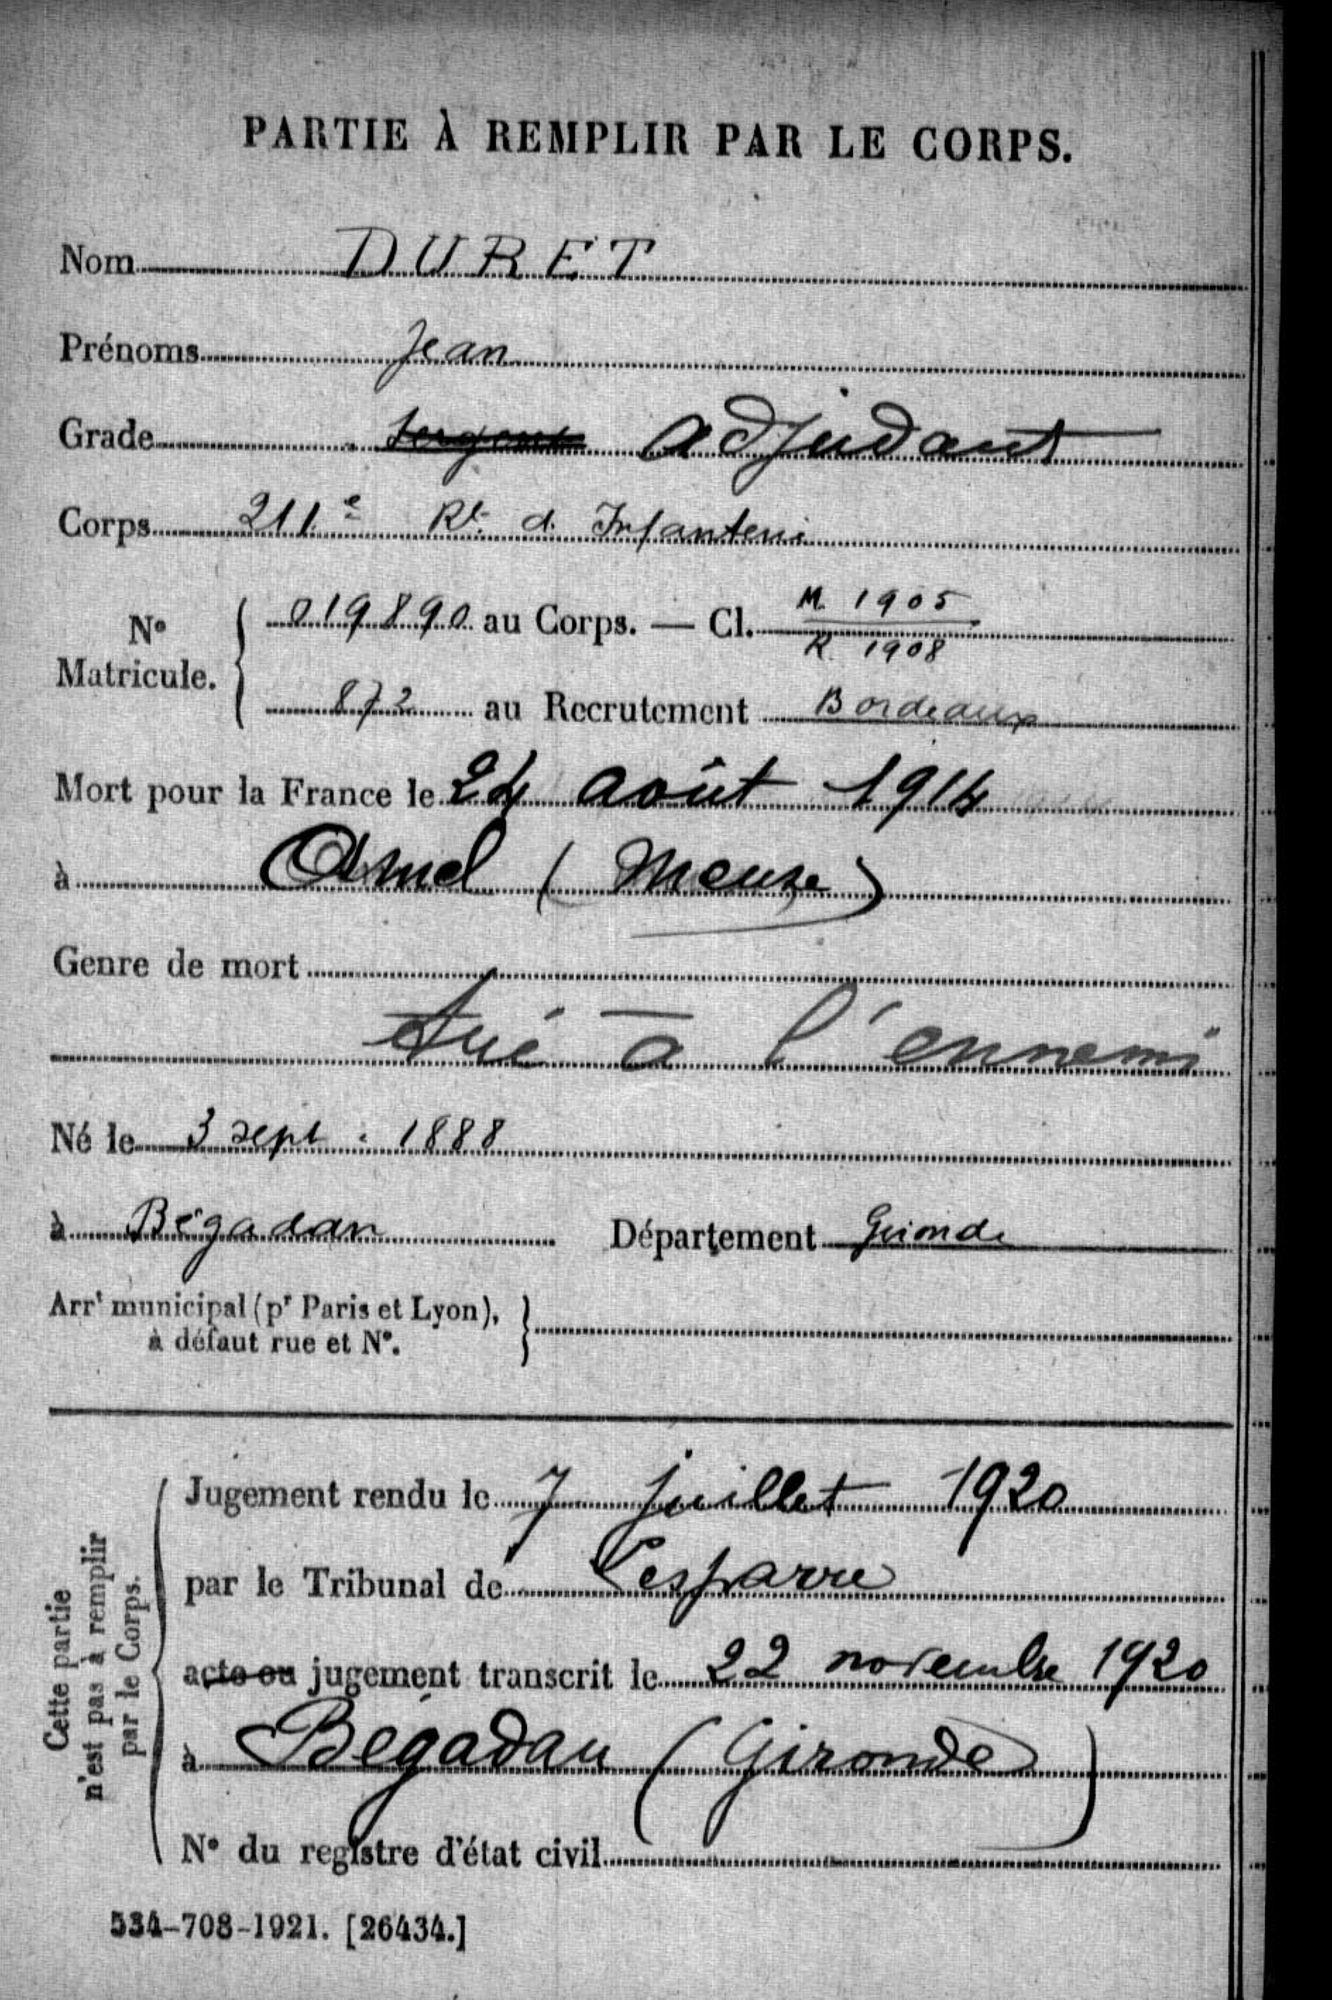 PARTIE À REMPLIR PAR LE CORPS.
Nom DURET
Prénoms Jean
Grade Sergent Adjudant
Corps 211e Rt. d. Infanterie
No Matricule. 019890 au Corps. — Cl. M. 1905 R. 1908
872 au Recrutement Bordeaux
Mort pour la France le 24 août 1914
à Amel (Meuse)
Genre de mort
tué à l'ennemi
Né le 3 sept. 1888
à Bégadan Département Gironde
Arrt municipal (pr Paris et Lyon),
à défaut rue et No.
Cette partie
n'est pas à remplir
par le Corps.
Jugement rendu le 7 juillet 1920
par le Tribunal de Lesparre
acte ou jugement transcrit le 22 novembre 1920
à Bégadan (Gironde)
No du registre d'état civil
534-708-1921. [26434.]